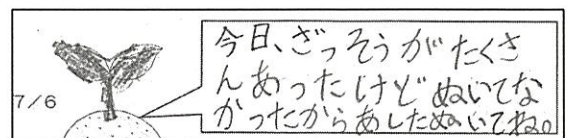 7/6
今日、ざっそうがたくさ
んあったけどぬいてな
かったからあしたぬいてね。